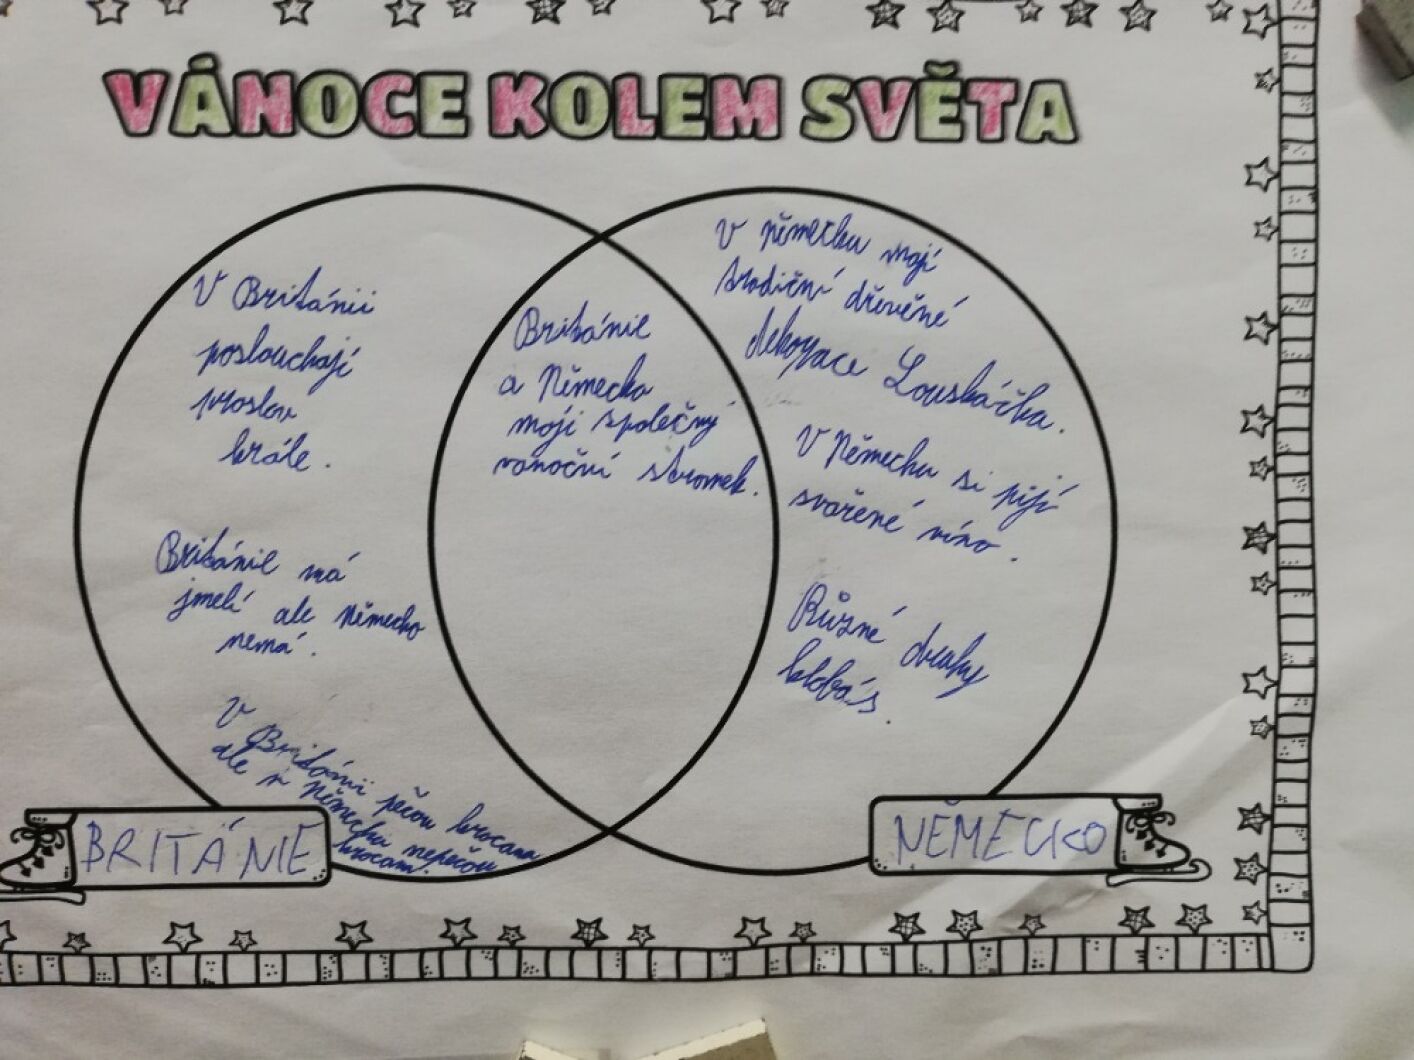 VÁNOCE KOLEM SVĚTA
V Británii
poslouchají
proslov
krále.
Británie má
jmelí ale Německo
nemá.
V
Británii pečou krocana
ale v Německu nepečou
krocan.
Británie
a Německo
mají společný
vánoční stromek.
V německu mají
tradiční dřevěné
dekorace Louskáčka.
V Německu si pijí
svařené víno.
Různé druhy
klobás.
BRITÁNIE
NĚMECKO